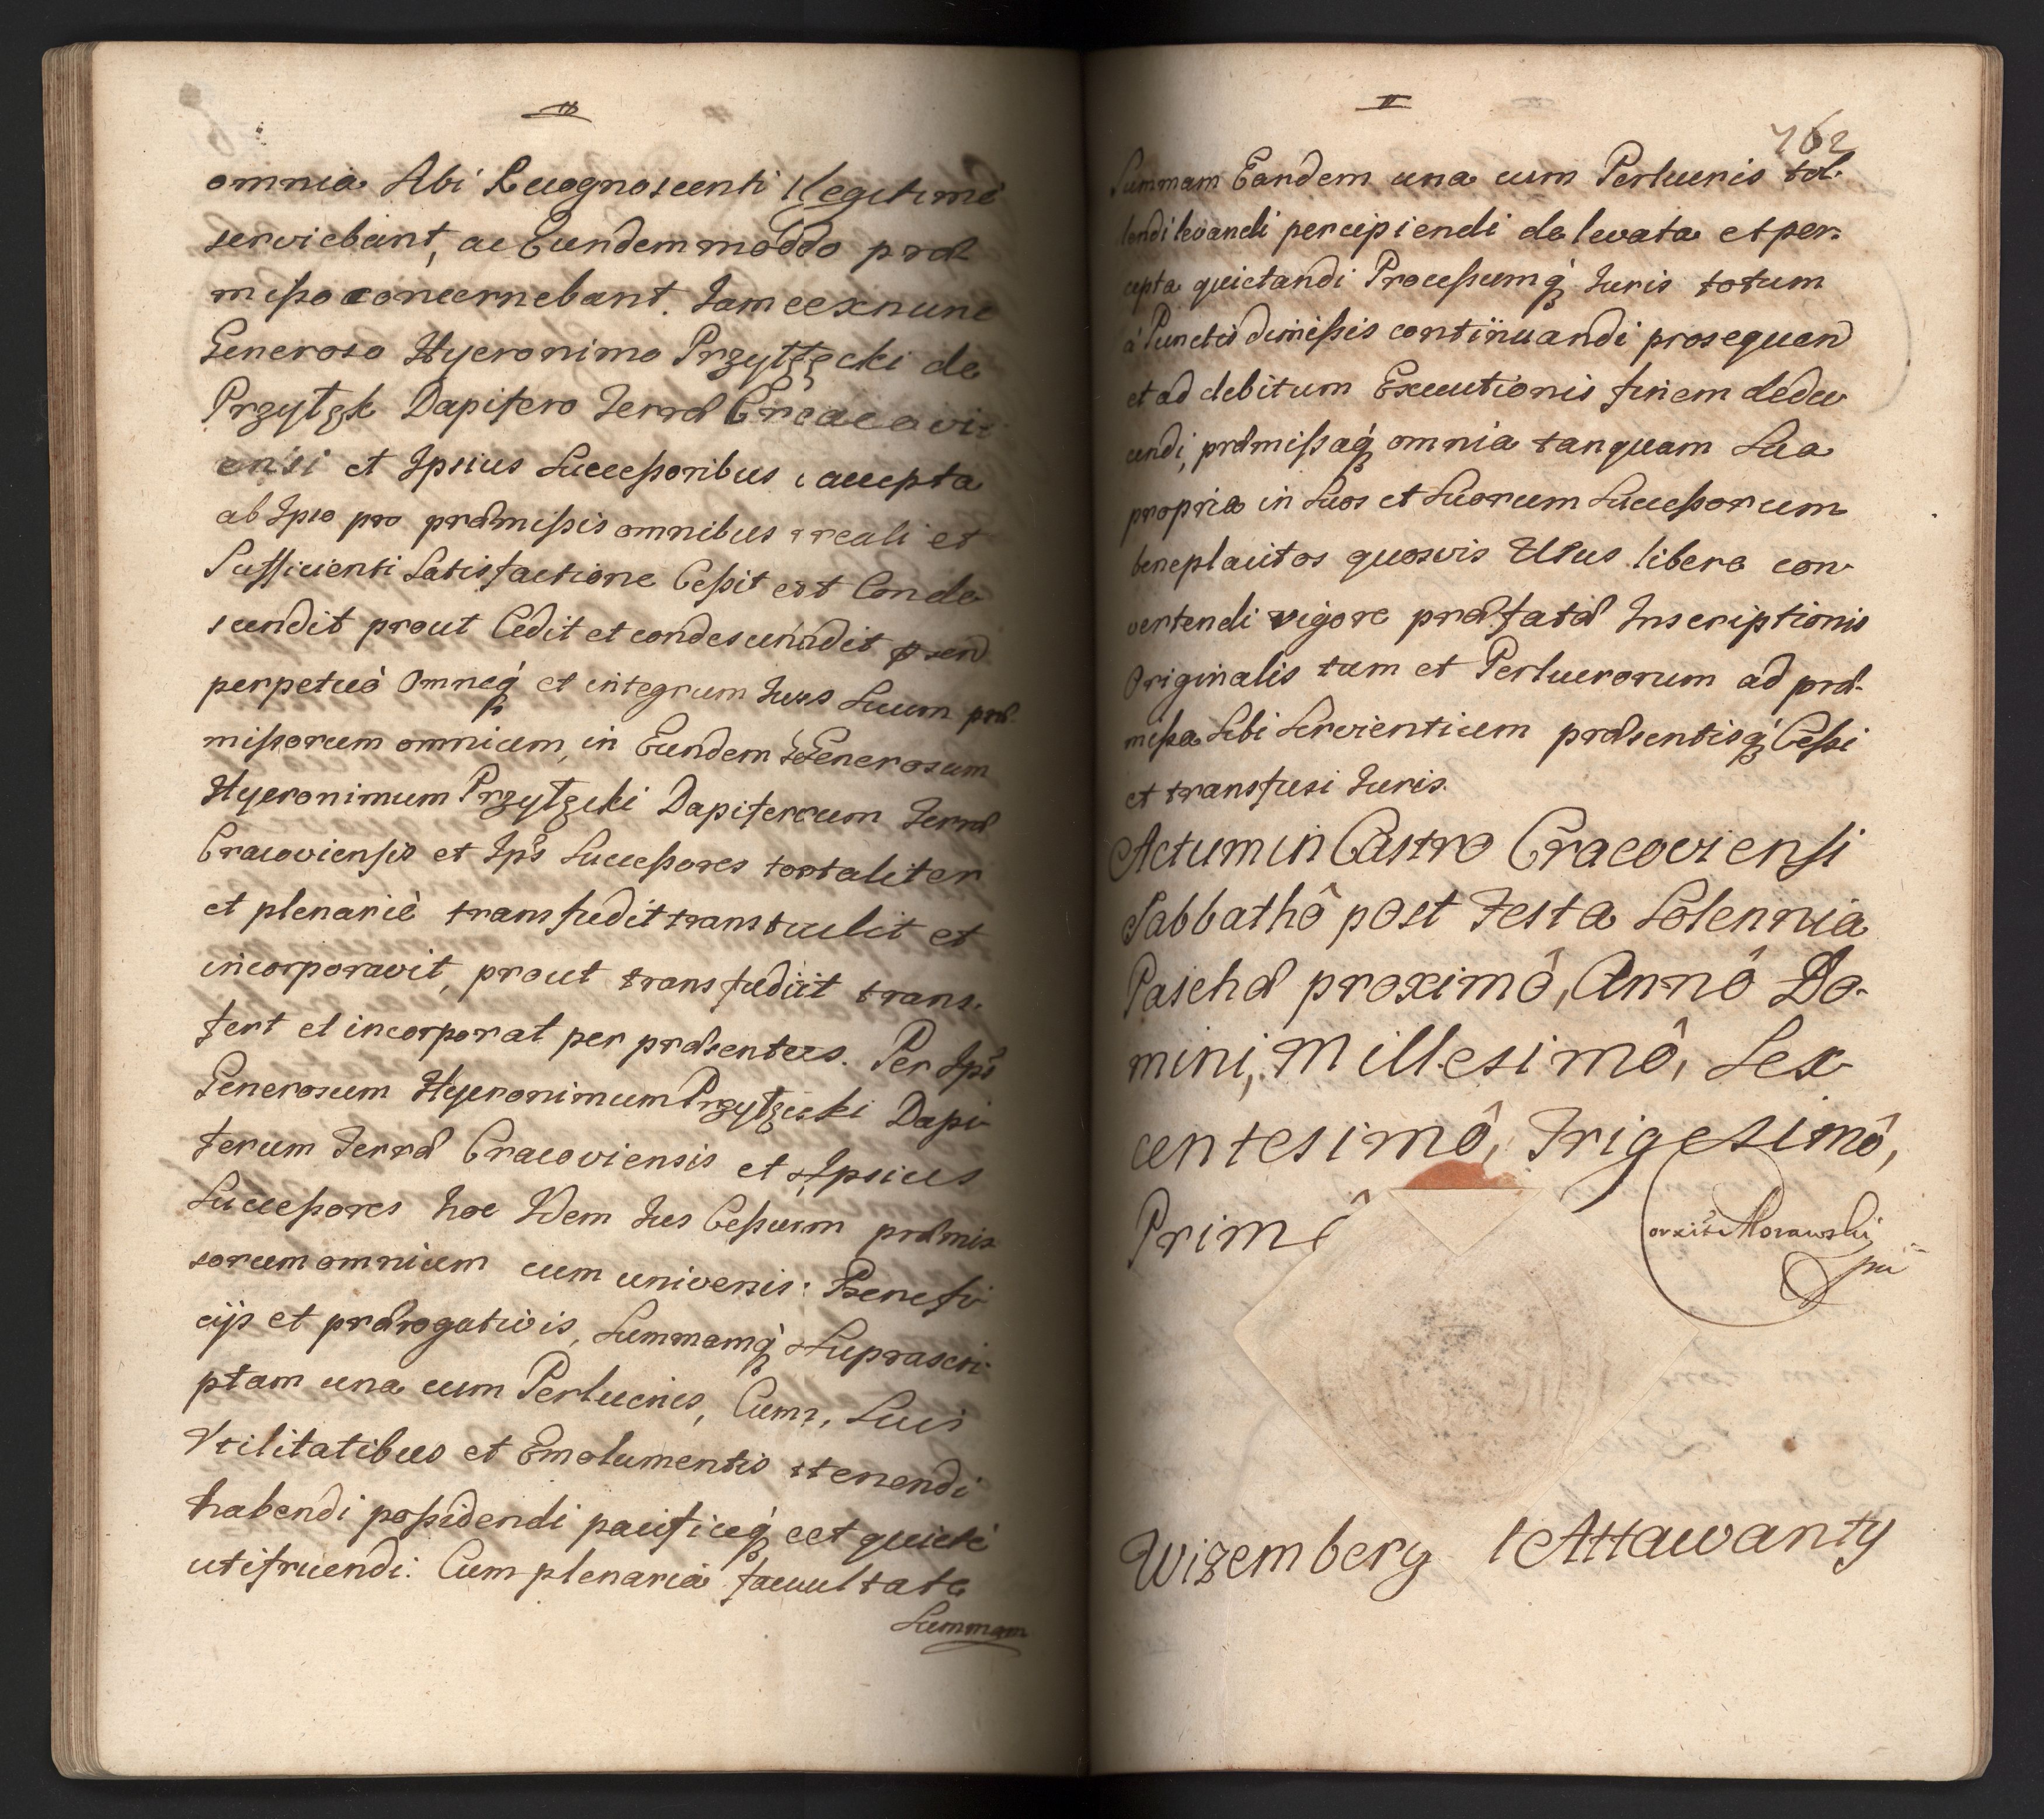 omnia sibi Recognoscenti Legitimè
serviebant, ac Eundem moddo præ
misso concernebant. Jam ex nunc
Generoso Hyeronimo Przyłęcki de
Przyłęk Dapifero Terræ Cracovi-
ensi et Ipsius Successoribus, accepta
ab Ipso pro præmissis omnibus reali et
Sufficienti Satisfactione Cessit et Conde
scendit prout Cedit et condescendit
perpetuò Omneq; et integrum Juss Suum præ-
missorum omnium, in Eundem Generosum
Hyeronimum Przyłęcki Dapiferum Terræ
Cracoviensis et Ips Successores totaliter
et plenariè transfudit transtulit et
incorporavit, prout transfudiit trans-
fert et incorporat per præsentes. Per Ips
Generosum Hyeronimum Przyłęcki Dapi
ferum Terræ Cracoviensis et Ipsius
Successores hoc Idem Jus Cessum præmis
sorum omnium cum universis: Benefi
cijs et prærogativis, Summamq; Suprascri-
ptam una cum Perlucris, Cumq, Suis
Vtilitatibus et Emolumentis tenendi
habendi possidendi pacificeq; et quietè
utifruendi: Cum plenaria facultate
Summam
II
762
Summam Eandem una cum Perlucris tol-
lendi levandi percipiendi de levata et per-
cepta quietandi Processumq; Juris totum
à Punctis dimissis continuandi prosequen
et ad debitum Executionis finem dedu
cendi, præmissaq; omnia tanquam Sua
propria in Suos et Suorum Successorum
beneplacitos quosvis Usus libere con-
vertendi vigore præfatæ Inscriptionis
Originalis tum et Perlucrorum ad præ-
missa Sibi Servientium præsentisq; Cessi
et transfusi Juris.
Actum in Castro Cracoviensi
Sabbathô post Festa Solennia
Paschæ proximô, Annô Do-
mini, Millesimô, Sex
centesimô, Trigesimô,
Primô
Corexit Morawski
mp
Wizemberg Attawanty